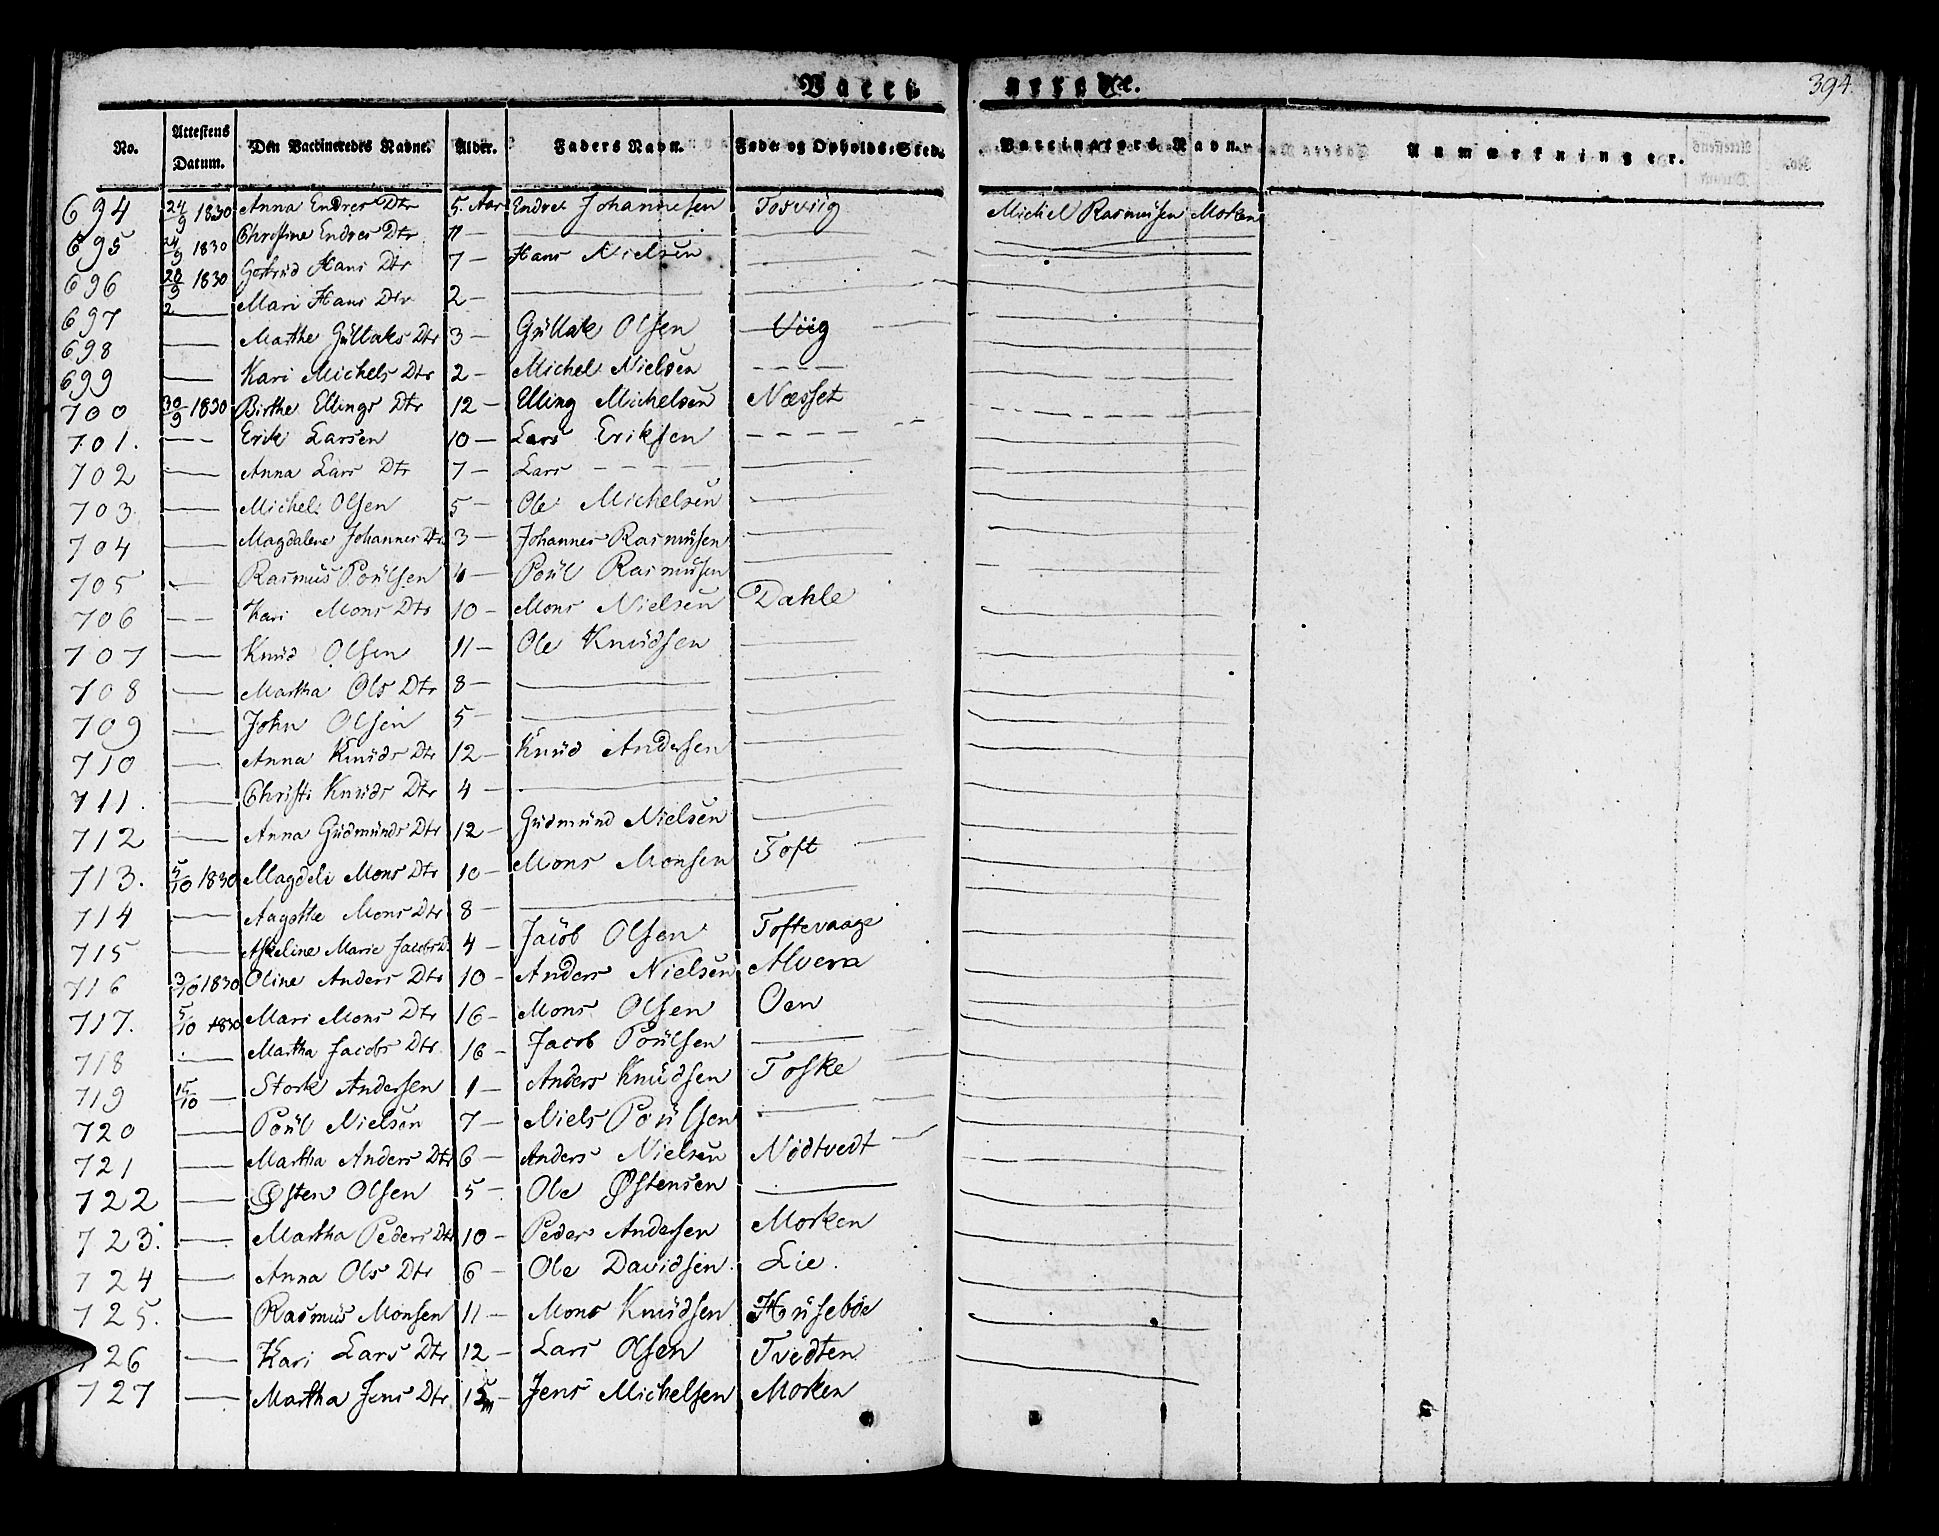 Vacci nerede.
394.
No. Attestens Datum. Den Vaccineredes Navne. Alder. Faders Navn. Føde- og Opholds-Sted. Vaccinateurs Navn. Anmærkninger.
694 24/9 1830 Anna Endres Dtr 5. Aar Endre Johannesen Tosviig Michel Rasmusen Morken
695 24/9 1830 Christine Endres Dtr — —
696 28/9 1830 Gertrud Hans Dtr 7 — Hans Nielsen — —
697 — Mari Hans Dtr 2 — — — —
698 — Marthe Gullaks Dtr 3 — Gullak Olsen Viig —
699 — Kari Michels Dtr 2 — Michel Nielsen — —
700 30/9 1830 Birthe Ellings Dtr 12 — Elling Michelsen Næsset —
701. — Erik Larsen 10 — Lars Eriksen — —
702 — Anna Lars Dtr 7 — Lars — — —
703 — Michel Olsen 5 — Ole Michelsen — —
704 — Magdalene Johannes Dtr 3 — Johannes Rasmusen — —
705 — Rasmus Poulsen 4 — Poul Rasmusen — —
706 — Kari Mons Dtr 10 — Mons Nielsen Dahle —
707 — Knud Olsen 11 — Ole Knudsen — —
708 — Martha Ols Dtr 8 — — — —
709 — John Olsen 5 — — — —
710 — Anna Knuds Dtr 12 — Knud Andersen — —
711. — Christi Knuds Dtr 4 — — — —
712 — Anna Gudmunds Dtr 12 — Gudmund Nielsen — —
713. 5/10 1830 Magdeli Mons Dtr 10 — Mons Monsen Toft —
714 — Aagothe Mons Dtr 8 — — — —
715 — Marie Jacobs D. 4 — Jacob Olsen Toftevaage —
716 3/10 1830 Oline Anders Dtr 10 — Anders Nielsen Alvera —
717. 5/10 1830 Mari Mons Dtr 16 — Mons Olsen Oen —
718 — Martha Jacobs Dtr 16 — Jacob Poulsen — —
719 15/10 — Stork Andersen 1 — Anders Knudsen Toske —
720 — Poul Nielsen 7 — Niels Poulsen — —
721 — Martha Anders Dtr 6 — Anders Nielsen Nödtvedt —
722 — Østen Olsen 5 — Ole Østensen — —
723. — Martha Peders Dtr 10 — Peder Andersen Morken —
724 — Anna Ols Dtr 6 — Ole Davidsen Lie. —
725. — Rasmus Monsen 11 — Mons Knudsen Huseböe —
726 — Kari Lars Dtr 12 — Lars Olsen Tvedten —
727 — Martha Jens Dtr Jens Michelsen Morken